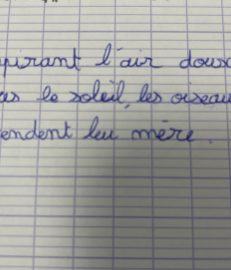 pirant l'air doux
as le soleil, les oiseau
endent leu mère.